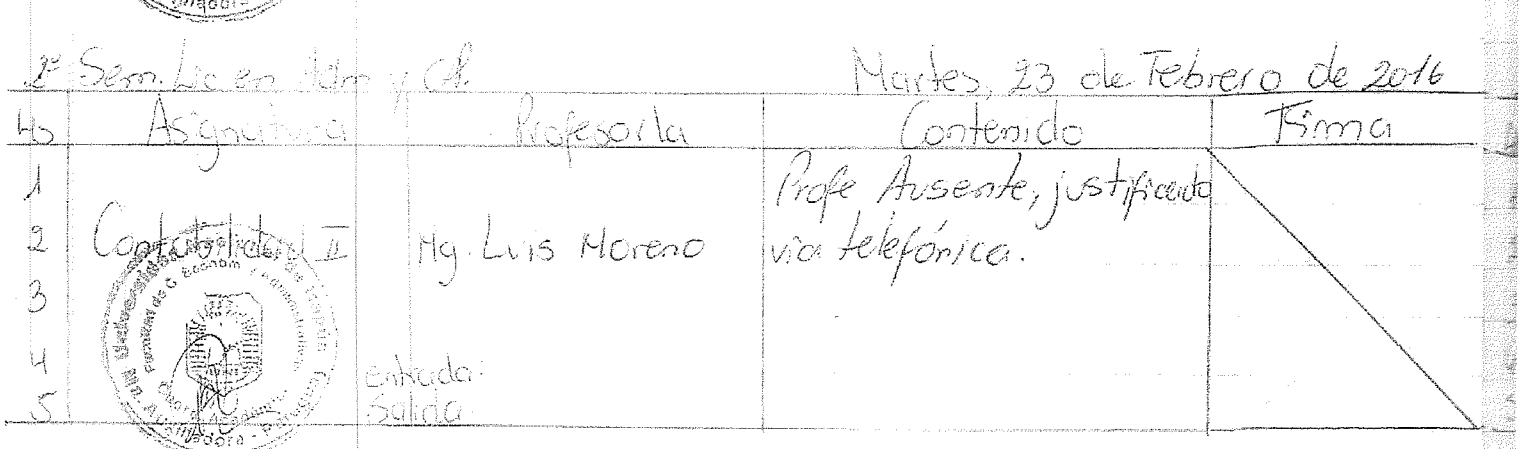 2º Sem. Lic en Adm y Martes, 23 de Febrero de 2016
Hs Asignatura Profesor/a Contenido Firma
1 Profe Ausente, justificado
2 Contabilidad II Mg. Luis Moreno vía telefónica.
3
4 entrada:
5 Salida: